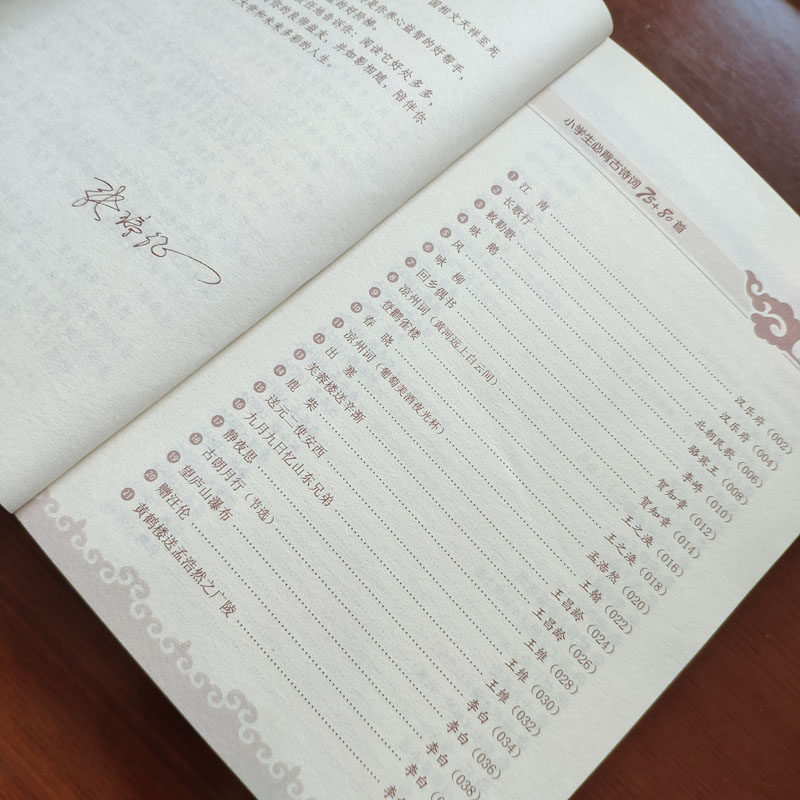 国相文天祥至死
的好阶梯。
养心益智的好帮手，
告诉你：阅读它好处多多，
的良师益友，并如影相随，陪伴你
美好和未来多彩的人生。
小学生必背古诗词75+80首
1 江南 汉乐府（002）
2 长歌行 汉乐府（004）
3 敕勒歌 北朝民歌（006）
4 咏鹅 骆宾王（008）
5 风 李峤（010）
6 咏柳 贺知章（012）
7 回乡偶书 贺知章（014）
8 凉州词（黄河远上白云间） 王之涣（016）
9 登鹳雀楼 王之涣（018）
10 春晓 孟浩然（020）
11 凉州词（葡萄美酒夜光杯） 王翰（022）
12 出塞 王昌龄（024）
13 芙蓉楼送辛渐 王昌龄（026）
14 鹿柴 王维（028）
15 送元二使安西 王维（030）
16 九月九日忆山东兄弟 王维（032）
17 静夜思 李白（034）
18 古朗月行（节选） 李白（036）
19 望庐山瀑布 李白（038）
20 赠汪伦 李白
21 黄鹤楼送孟浩然之广陵